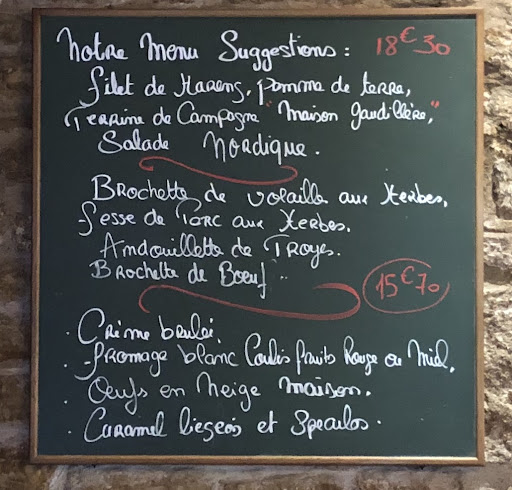 Notre Menu Suggestions : 18€30
filet de Hareng, pomme de terre,
Terrine de Campagne "Maison Gaudillère,"
Salade Nordique.
Brochette de volaille aux Herbes.
fesse de Porc aux Herbes.
Andouillette de Troyes.
Brochette de Boeuf ..
15€70
. Crème brulei.
. fromage blanc Coulis fruits Rouge ou Miel.
. Oeufs en Neige Maison.
. Caramel liegeois et Speculos.